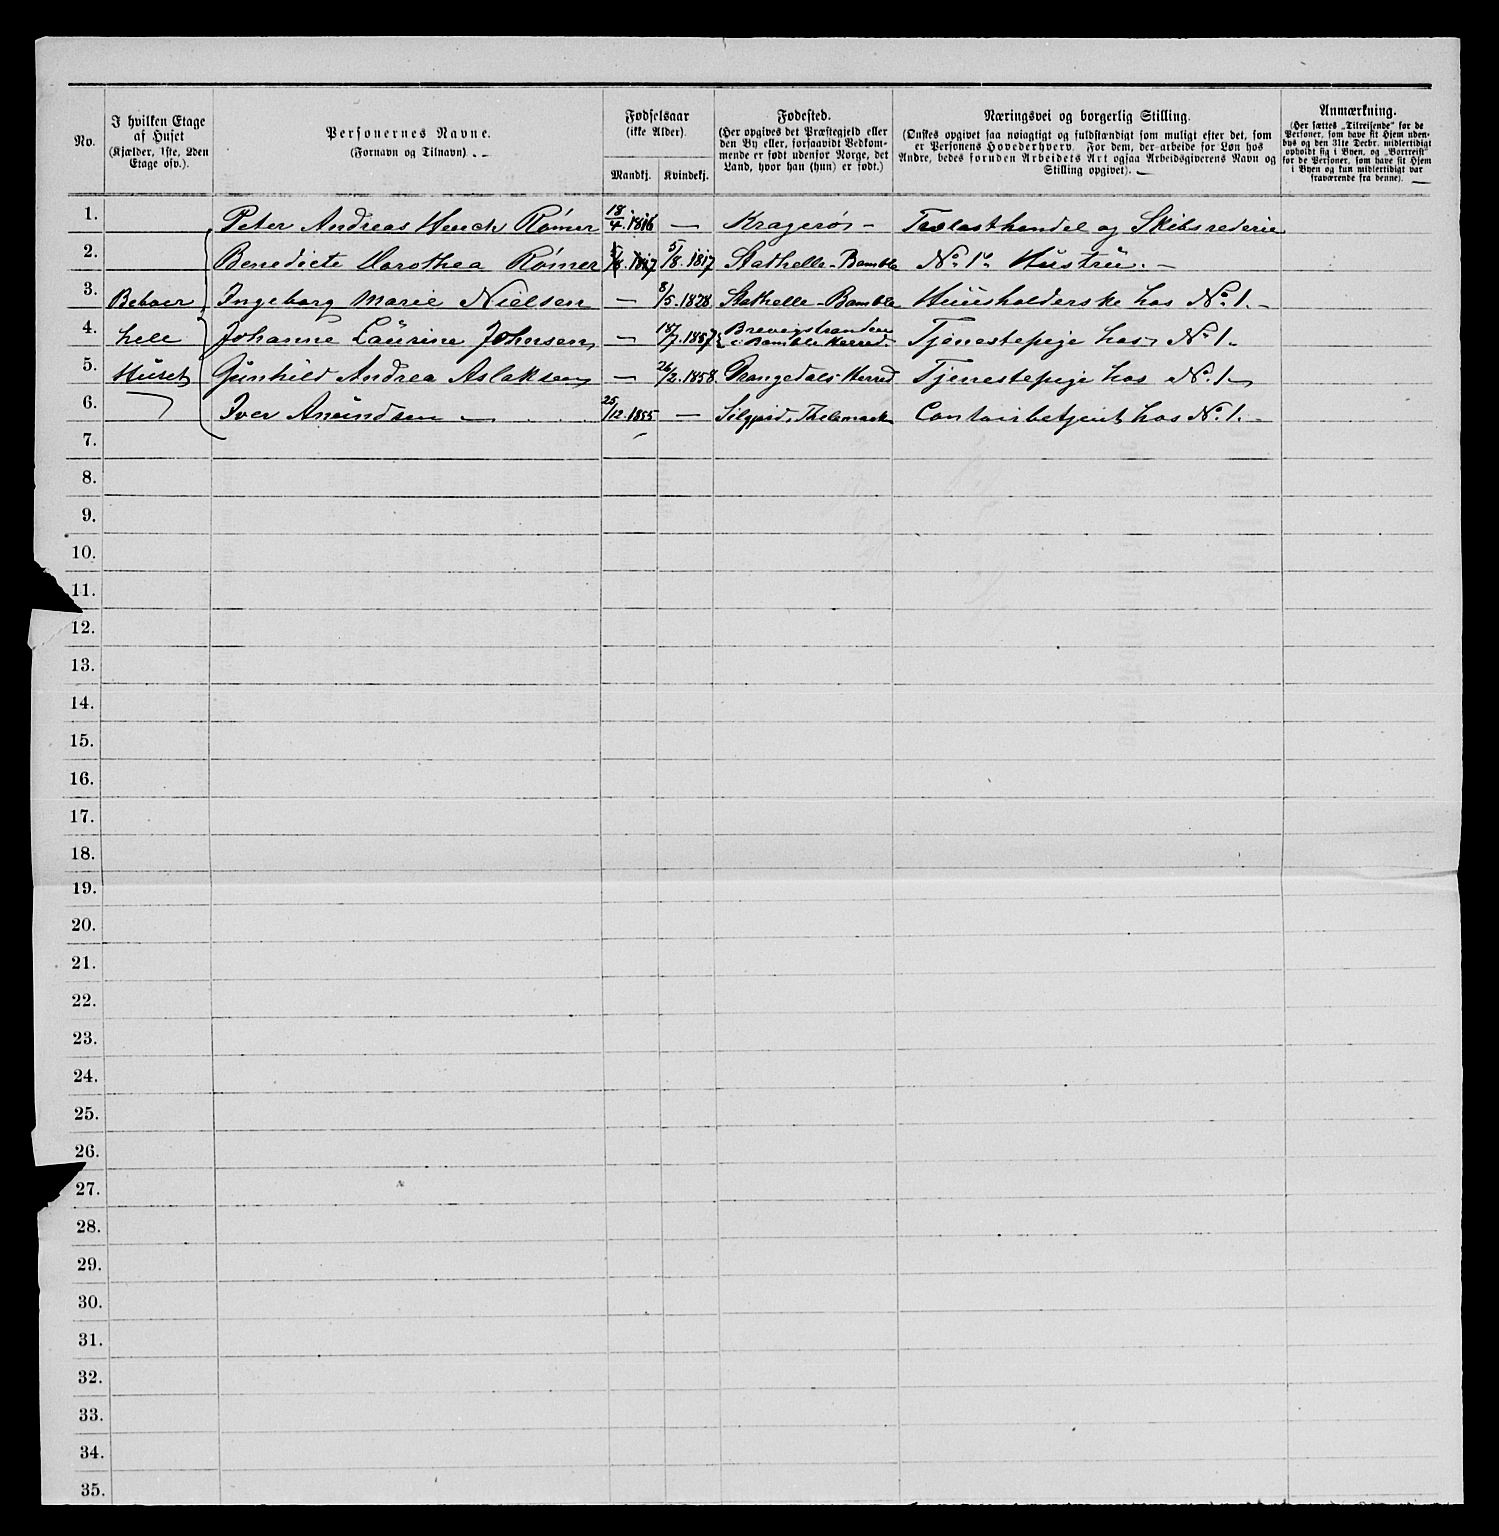 No.
I hvilken Etage af Huset (Kjælder, 1ste, 2den Etage osv.).
Personernes Navne. (Fornavn og Tilnavn)
Fødselsaar (ikke Alder).
Mandkj. Kvindekj.
Fødested. (Her opgives det Præstegjeld eller den By eller, forsaavidt Vedkommende er født udenfor Norge, det Land, hvor han (hun) er født.)
Næringsvei og borgerlig Stilling. (Ønskes opgivet saa nøiagtigt og fuldstændigt som muligt efter det, som er Personens Hovederhverv. For dem, der arbeide for Løn hos Andre, bedes foruden Arbeidets Art ogsaa Arbeidsgiverens Navn og Stilling opgivet).
Anmærkning. (Her sættes „Tilreisende“ for de Personer, som have sit Hjem udenbys og den 31te Decbr. midlertidigt opholdt sig i Byen, og „Bortreist“ for de Personer, som have sit Hjem i Byen og kun midlertidigt var fraværende fra denne).
1. Peter Andreas Heuch Rømer 18/4. 1816 — Kragerø — Trælasthandel og Skibsrederie
2. Benedicte Dorothea Rømer 5/8. 1817 5/8. 1817 Stathelle - Bamble No. 1s Hustru. —
3. Beboer Ingeborg Marie Nielsen — 8/5. 1828 Stathelle - Bamble Huusholderske hos No. 1. —
4. hele Johanne Laurine Johnsen — 18/7. 1857 Brevigstranden i Bamble Herred. Tjenestepige hos No. 1.
5. Huset Gunhild Andrea Aslaksen — 26/2. 1858. Drangedals Herred Tjenestepige hos No. 1
6. Iver Anundsen — 25/12. 1855 — Silgjord, Thelemarken Contoirbetjent hos No. 1. —
7.
8.
9.
10.
11.
12.
13.
14.
15.
16.
17.
18.
19.
20.
21.
22.
23.
24.
25.
26.
27.
28.
29.
30.
31.
32.
33.
34.
35.